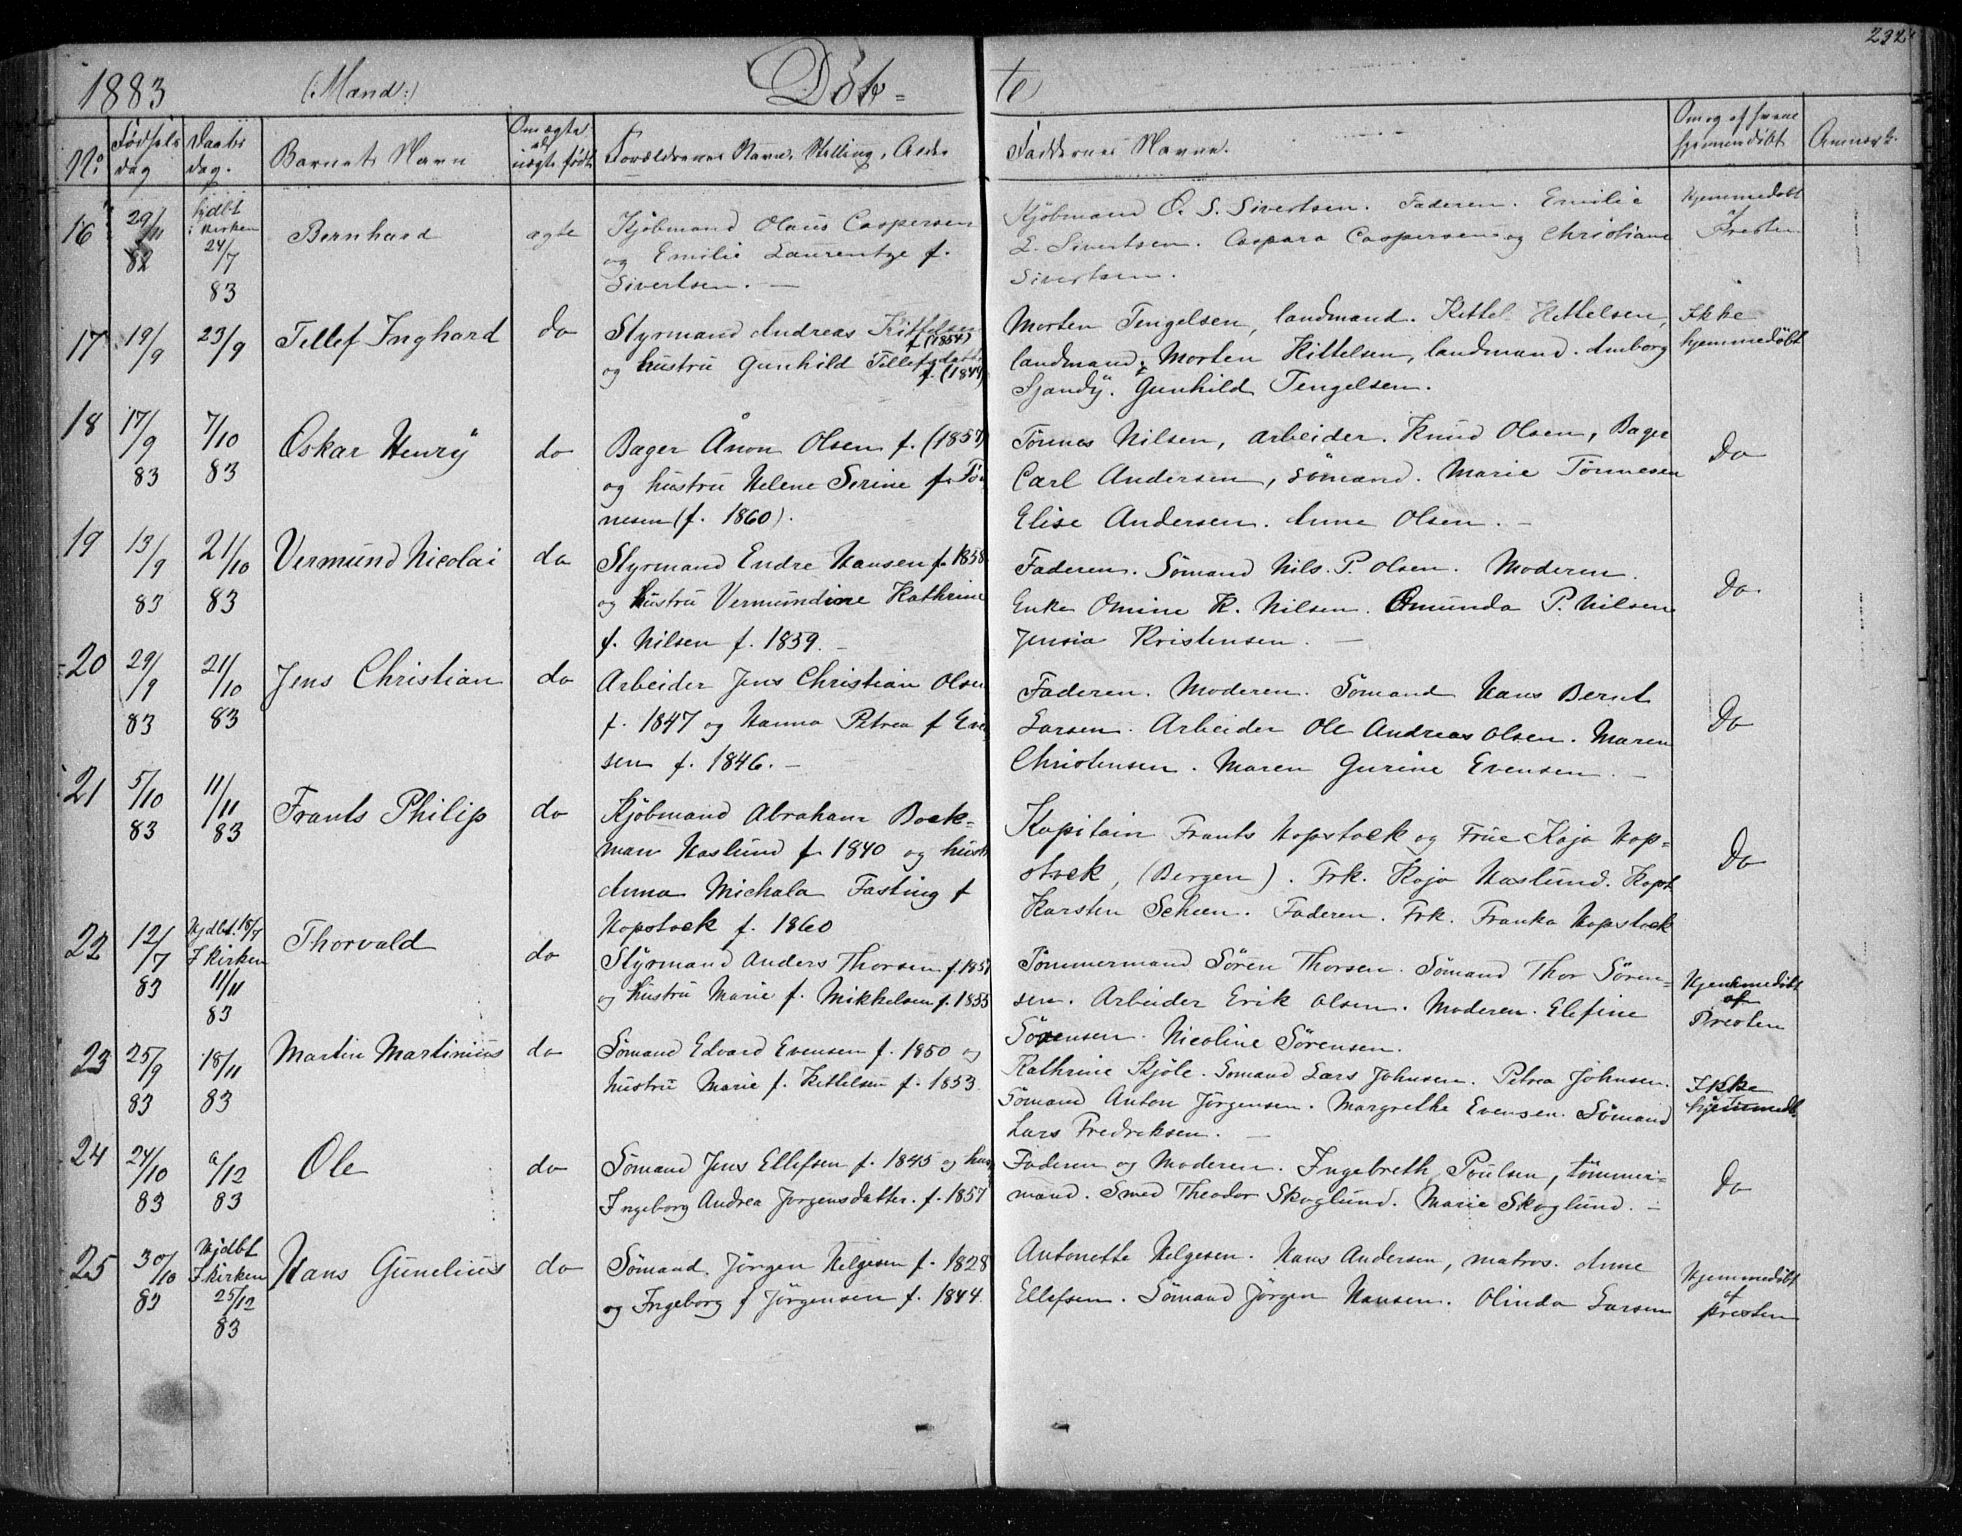 232
1883 (Mænd:) Døb- te
No Fødsels dag Daabs dag. Barnets Navn Om ægte el. uægte født Forældrenes Navn, Stilling, Alder Faddernes Navne. Om og af hvem hjemmedøbt Anmærk.
16 29/11 82 hjdbt i kirken 24/7 83 Bernhard ægte
Kjøbmand Olaus Caspersen
og Emilie Laurentze f.
Sivertsen. —
Kjøbmand O. S. Sivertsen. Faderen. Emilie
L. Sivertsen. Caspara Caspersen og Christiane
Sivertsen.
Hjemmedøbt
af
Presten
17 19/9 23/9 Tellef Inghard do
Styrmand Andreas Kittelsen
f (1854)
og hustru Gunhild Tellefsdatt
f. (1849
Morten Tengelsen, landmand. Kittel Kittelsen,
landmand, Morten Kittelsen, landmand. Amborg
Sjandÿ. Gunhild Tengelsen.
Ikke
hjemmedøbt
18 17/9 83 7/10 83 Oskar Henrÿ do
Bager Ånon Olsen f. (1857)
og hustru Helene Serine f. Tön
nesen (f. 1860).
Tönnes Nilsen, Arbeider. Knud Olsen, Bager
Carl Andersen, sömand. Marie Tönnesen
Elise Andersen. Anne Olsen. —
Do
19 13/9 83 21/10 83 Vermund Nicolai do
Styrmand Endre Hansen f. 1858
og hustru Vermundine Kathrine
f. Nilsen f. 1859. —
Faderen. Sömand Nils. P. Olsen. Moderen.
Enke Omine K. Nilsen. Omunda P. Nilsen
Jensia Kristensen. —
Do.
20 29/9 83 21/10 83 Jens Christian do
Arbeider Jens Christian Olsen
f. 1847 og Hanna Petrea f Even
sen f. 1846. —
Faderen. Moderen. Sömand Hans Bernt
Larsen. Arbeider Ole Andreas Olsen. Maren
Christensen. Maren Gurine Evensen. —
Do
21 5/10 83 11/11 83 Frants Philip do
Kjöbmand Abraham Boek-
man Haslund f. 1840 og hust
Anna Michala Fasting f
Hopstock f. 1860
Kapitain Frants Hopstock og Frue Kaja Hop-
stock, (Bergen). Frk. Kaja Haslund. Kapt
Karsten Scheen. Faderen. Frk. Franka Hopstock
Do
22 12/7 83 Hjdbt. 18/7 I kirken 11/11 83 Thorvald do
Styrmand Anders Thorsen f. 1851
og hustru Marie f. Mikkelsen f. 1855
Tömmermand Sören Thorsen. Sömand Thor Sören-
sen. Arbeider Erik Olsen. Moderen. Elefine
Sörensen. Nicoline Sörensen.
Hjemmedöbt
af
Presten
23 25/9 83 18/11 83 Martin Martinius do
Sömand Edvard Evensen f. 1850 og
hustru Marie f. Kittelsen f. 1853.
Kathrine Kjöle. Sömand Lars Johnsen. Petrea Johnsen.
Sömand Anton Jörgensen. Margrethe Evensen. Sömand
Lars Fredriksen. —
Ikke
hjemmedt.
24 24/10 83 2/12 83 Ole do
Sömand Jens Ellefsen f. 1845 og hus
Ingeborg Andrea Jorgensdatter. f. 1857
Faderen og Moderen. Ingebreth Poulsen, tömmer-
mand. Smed Theodor Skoglund. Marie Skoglund. —
Do
25 30/10 83 Hjdbt I kirken 25/12 83 Hans Gunelius do
Sömand. Jörgen Helgesen f. 1828
og Ingeborg f Jörgensen f. 1844.
Antonette Helgesen. Hans Andersen, matros. Anne
Ellefsen. Sömand Jörgen Hansen. Olinda Larsen
Hjemmedöbt
af
presten